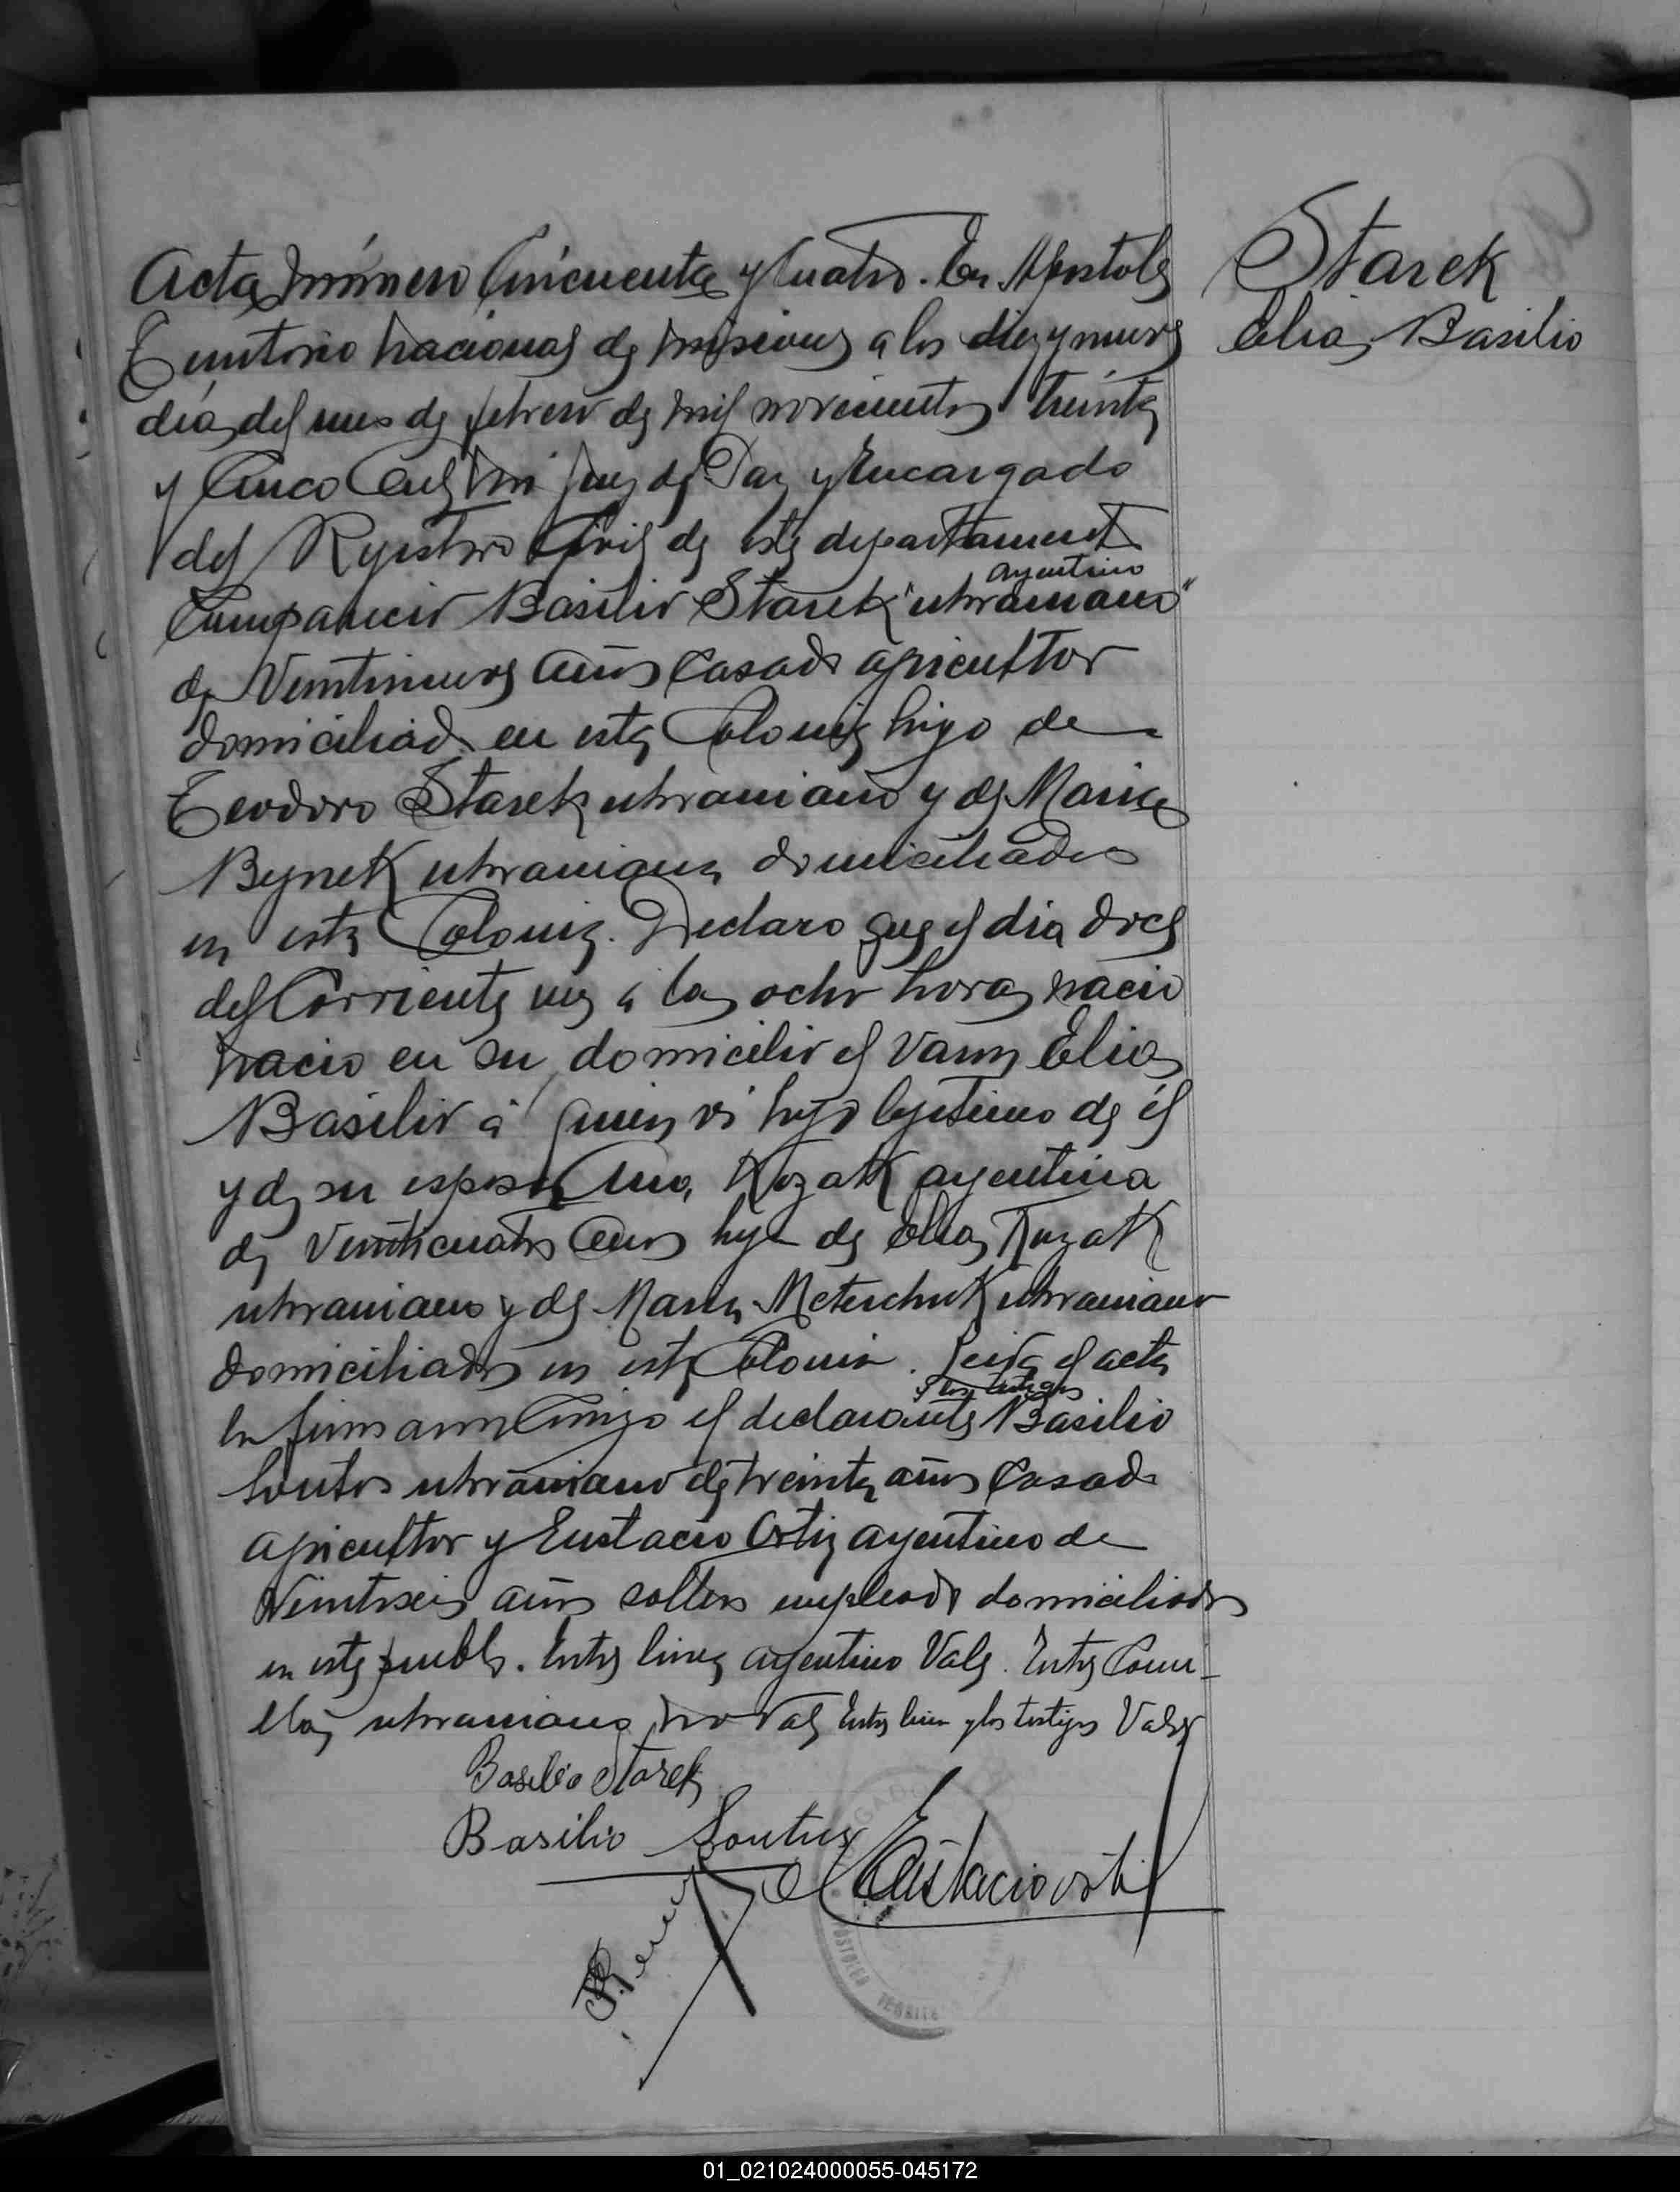 Acta número Cincuenta y Cuatro. En Apostoles
Territorio Nacional de Misiones a los diez y nueve
días del mes de febrero de mil novecientos treinta
y Cinco Ante mi Juez de Paz y Encargado
del Registro Civil de este departamento
argentino
Compareció Basilio Starek "ukraniano"
de Veintinueve años Casado agricultor
domiciliado en esta Colonia hijo de
Teodoro Starek ukraniano y de Maria
Bynek ukraniana domiciliados
en esta Colonia. Declaro que el dia doce
del Corriente mes á las ocho horas nacio
nacio en su domicilio el varon Elias
Basilio á quien vi hijo legitimo de él
y de su esposa Ana Kozak argentina
de Veinticuatro años hija de Elias Kozak
ukraniano y de Maria Meteschuk ukraniano
domiciliados en esta Colonia. Leida el acta
y los testigos
la firmaron Conmigo el declarante Basilio
ukraniano de treinta años Casado
agricultor y Eustacio Ortiz argentino de
Veintiseis años soltero empleado domiciliados
en este pueblo. Entre linea argentino Vale. Entre Comi-
llas ukraniano no Vale Entre linea y los testigos Vale
Basilio Starek
Basilio
Eustacio Ortiz
Starek
Elias Basilio
01_021024000055-045172